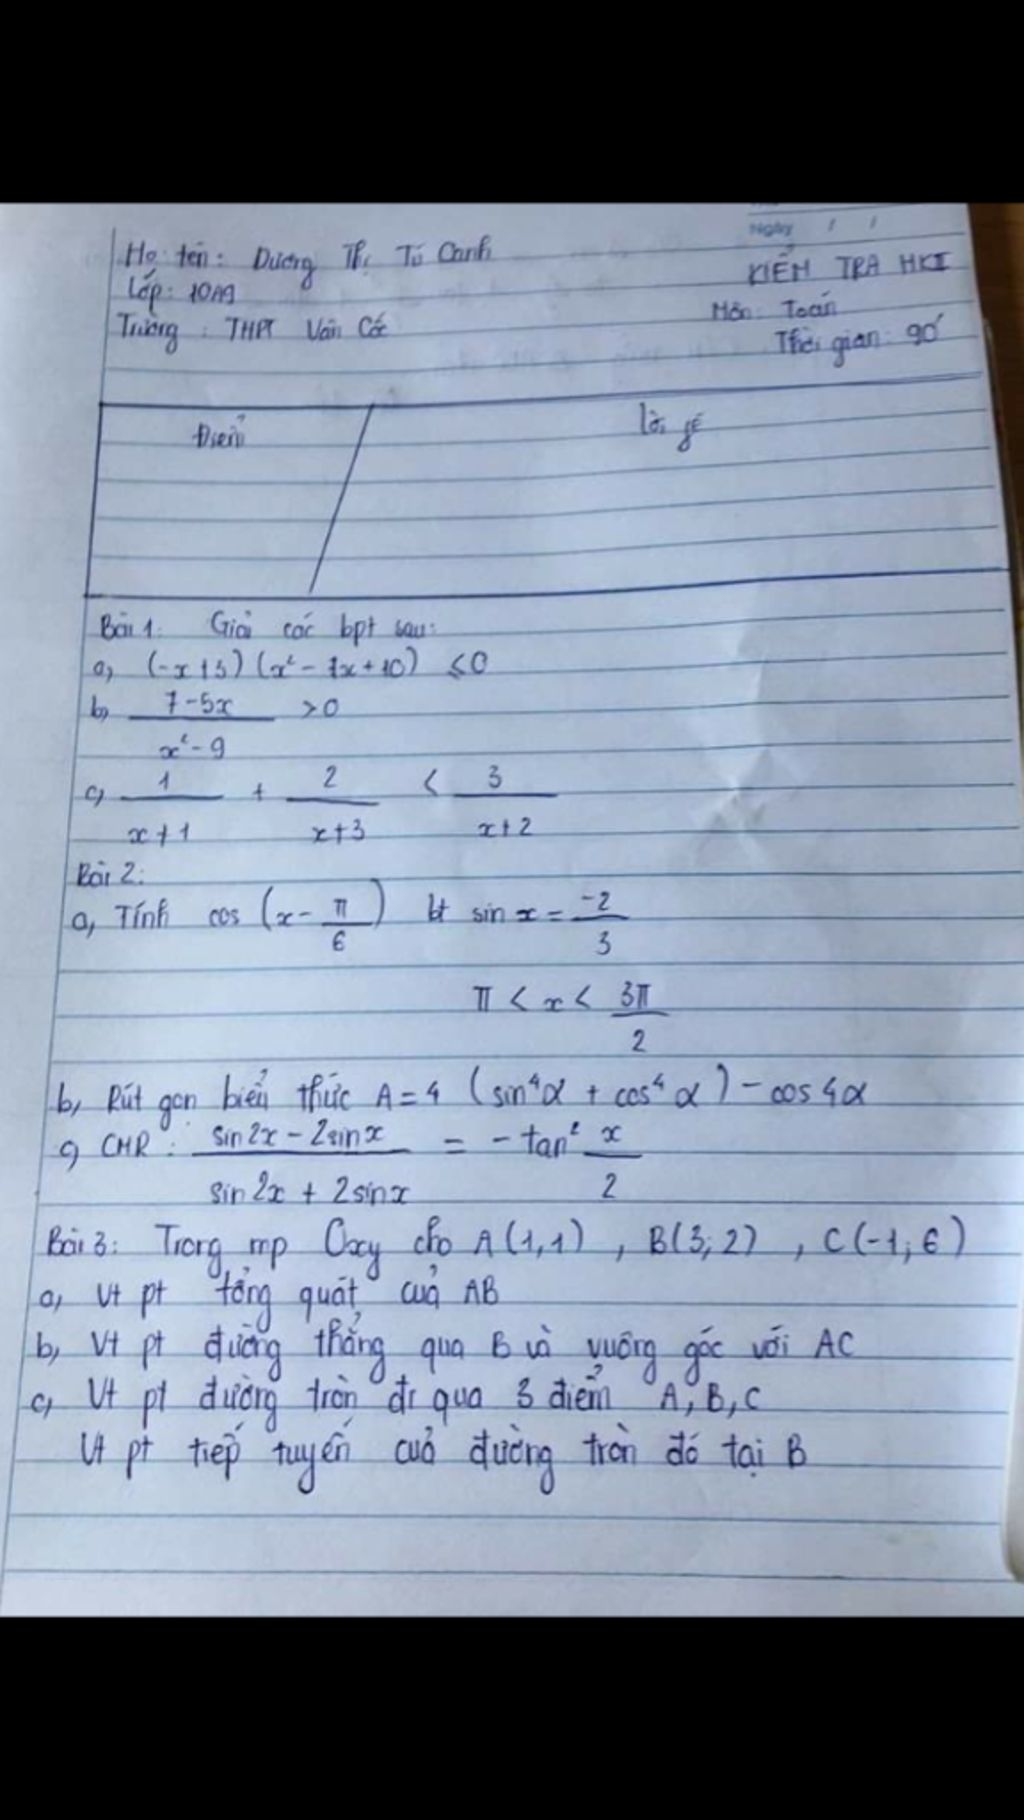 Ngày / /
Họ tên: Dương Thị Tú Oanh
KIỂM TRA HKI
Lớp: 10A9
Môn: Toán
Trường: THPT Vân Cốc
Thời gian: 90'
Điểm
Lời
Bài 1: Giải các bpt sau:
a, (-x+5)(x² - 7x + 10) ≤ 0
b, (7-5x)/(x²-9) > 0
c, 1/(x+1) + 2/(x+3) < 3/(x+2)
Bài 2:
a, Tính cos (x - π/6) bt sin x = -2/3
π < x < 3π/2
b, Rút gọn biểu thức A = 4 (sin⁴α + cos⁴α) - cos4α
c, CMR: (sin2x - 2sinx)/(sin2x + 2sinx) = -tan² x/2
Bài 3: Trong mp Oxy cho A(1,1), B(3;2), C(-1;6)
a, Vt pt tổng quát cuả AB
b, Vt pt đường thẳng qua B và vuông góc với AC
c, Vt pt đường tròn đi qua 3 điểm A, B, C
Vt pt tiếp tuyến cuả đường tròn đó tại B